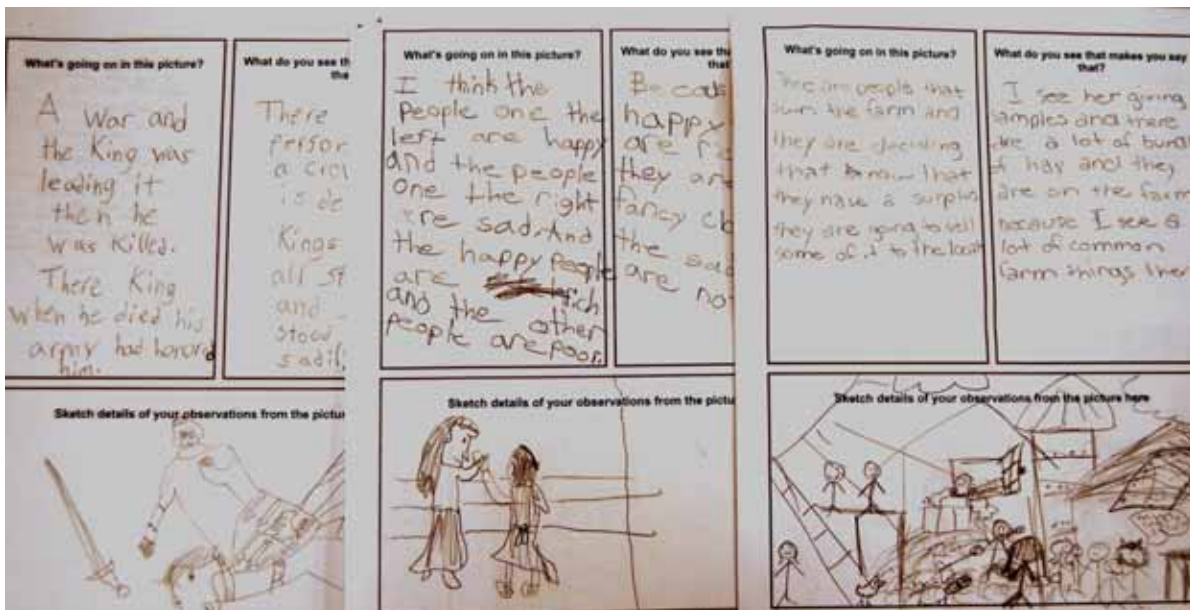 What's going on in this picture?
A War and
the King was
leading it
then he
was killed.
There King
when he died his
army had honord
him.
What do you see th
the
There
person
a cro
is de
Kings
all st
and
stood
Sketch details of your observations from the pictu
What's going on in this picture?
I think the
People one the
left are happy
and the people
one the right
are sad. And
the happy people
are rich
and the other
people are poor.
What do you see th
that
happy
are
they are
fancy
the sad
are no
Sketch details of your observations from the pictu
What's going on in this picture?
people that
own the farm and
they are deciding
that that
they have a surplus
they are going to sell
some of it to the
What do you see that makes you say
that?
I see her giving
samples and there
are a lot of
of hay and they
are on the farm
because I see a
lot of common
farm things ther
Sketch details of your observations from the picture here